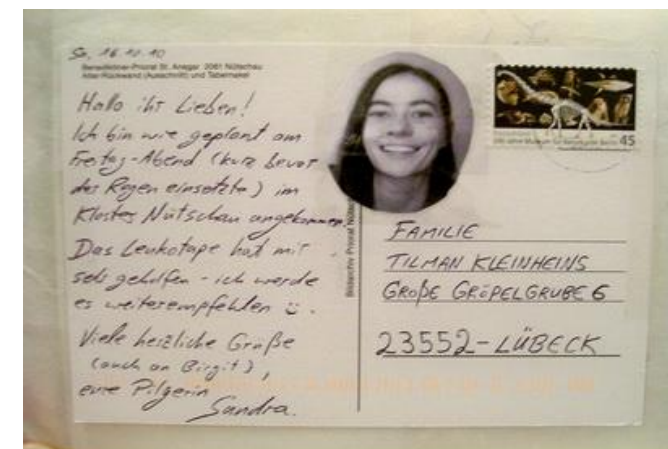 Sa, 16.10.10
Benediktiner-Priorat St. Ansgar 2061 Nütschau
Altar-Rückwand (Ausschnitt) und Tabernakel
Hallo ihr Lieben!
Ich bin wie geplant am
Freitag-Abend (kurz bevor
der Regen einsetzte) im
Kloster Nütschau angekommen.
Das Leukotape hat mir
sehr geholfen - ich werde
es weiterempfehlen ü.
Viele herzliche Grüße
(auch an Birgit),
eure Pilgerin
Sandra.
Bildarchiv Priorat Nütsc
200 Jahre Museum für Naturkunde Berlin
45
FAMILIE
TILMAN KLEINHEINS
GROßE GRÖPELGRUBE 6
23552-LÜBECK